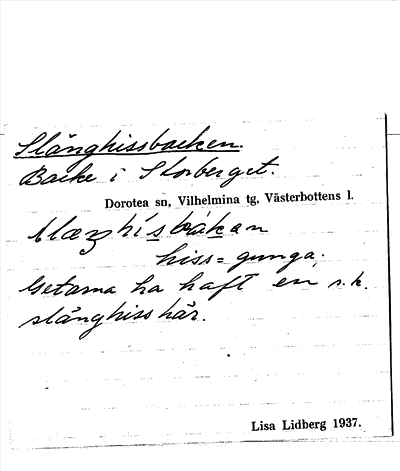 Slånghissbacken.
Backe i Storberget.
Dorotea sn, Vilhelmina tg, Västerbottens l.
hísbákan
hiss = gunga.
Getarna ha haft en s.k.
slånghiss här.
Lisa Lidberg 1937.